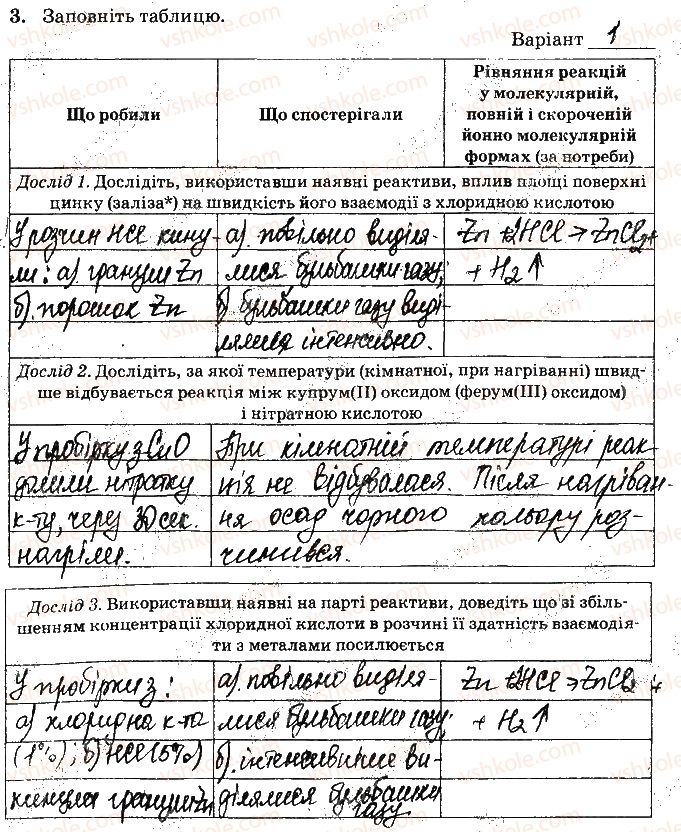 3. Заповніть таблицю.
Варіант 1
Що робили
Що спостерігали
Рівняння реакцій
у молекулярній,
повній і скороченій
йонно молекулярній
формах (за потреби)
Дослід 1. Дослідіть, використавши наявні реактиви, вплив площі поверхні
цинку (заліза*) на швидкість його взаємодії з хлоридною кислотою
У розчин HCl кину-
ли: а) гранули Zn
б). порошок Zn
а). повільно виділя-
лися бульбашки газу;
б) бульбашки газу виді-
лялися інтенсивно.
Zn + 2HCl → ZnCl2 +
+ H2↑
Дослід 2. Дослідіть, за якої температури (кімнатної, при нагріванні) швид-
ше відбувається реакція між купрум(ІІ) оксидом (ферум(ІІІ) оксидом)
і нітратною кислотою
У пробірку з CuO
долили нітратну
к-ту, через 30 сек.
нагріли.
При кімнатній температурі реак-
ція не відбувалася. Після нагріван-
ня осад чорного кольору роз-
чинився.
Дослід 3. Використавши наявні на парті реактиви, доведіть що зі збіль-
шенням концентрації хлоридної кислоти в розчині її здатність взаємодія-
ти з металами посилюється
У пробірки з:
а) хлоридна к-та
(1%); б) HCl (5%)
кинули гранули Zn
а). повільно виділя-
лися бульбашки газу;
б). інтенсивніше ви-
ділялися бульбашки
газу
Zn + 2HCl → ZnCl2 +
+ H2↑